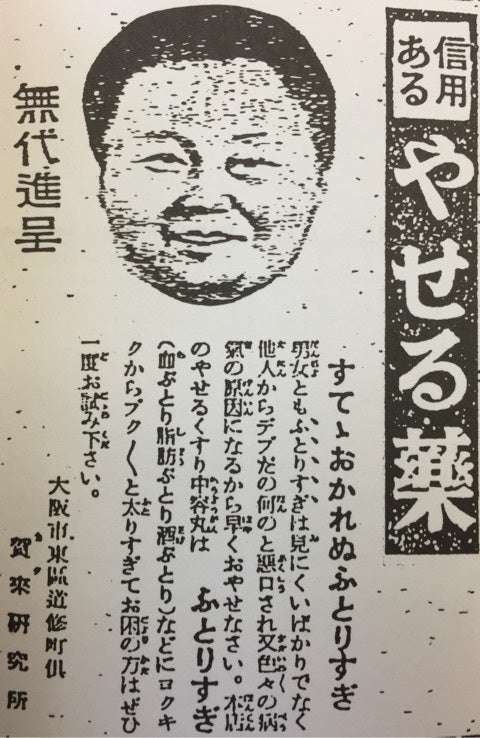 信用
ある
やせる藥
すてゝおかれぬふとりすぎ
男女ともふとりすぎは見にくいばかりでなく
他人からデブだの何のと惡口され又色々の病
氣の原因になるから早くおやせなさい。本店
のやせるくすり中容丸は ふとりすぎ
(血ぶとり脂肪ぶとり酒ぶとり)などにロクキ
クからブク〱と太りすぎてお困の方はぜひ
一度お試み下さい。
大阪市東區道修町
賀來研究所
無代進呈